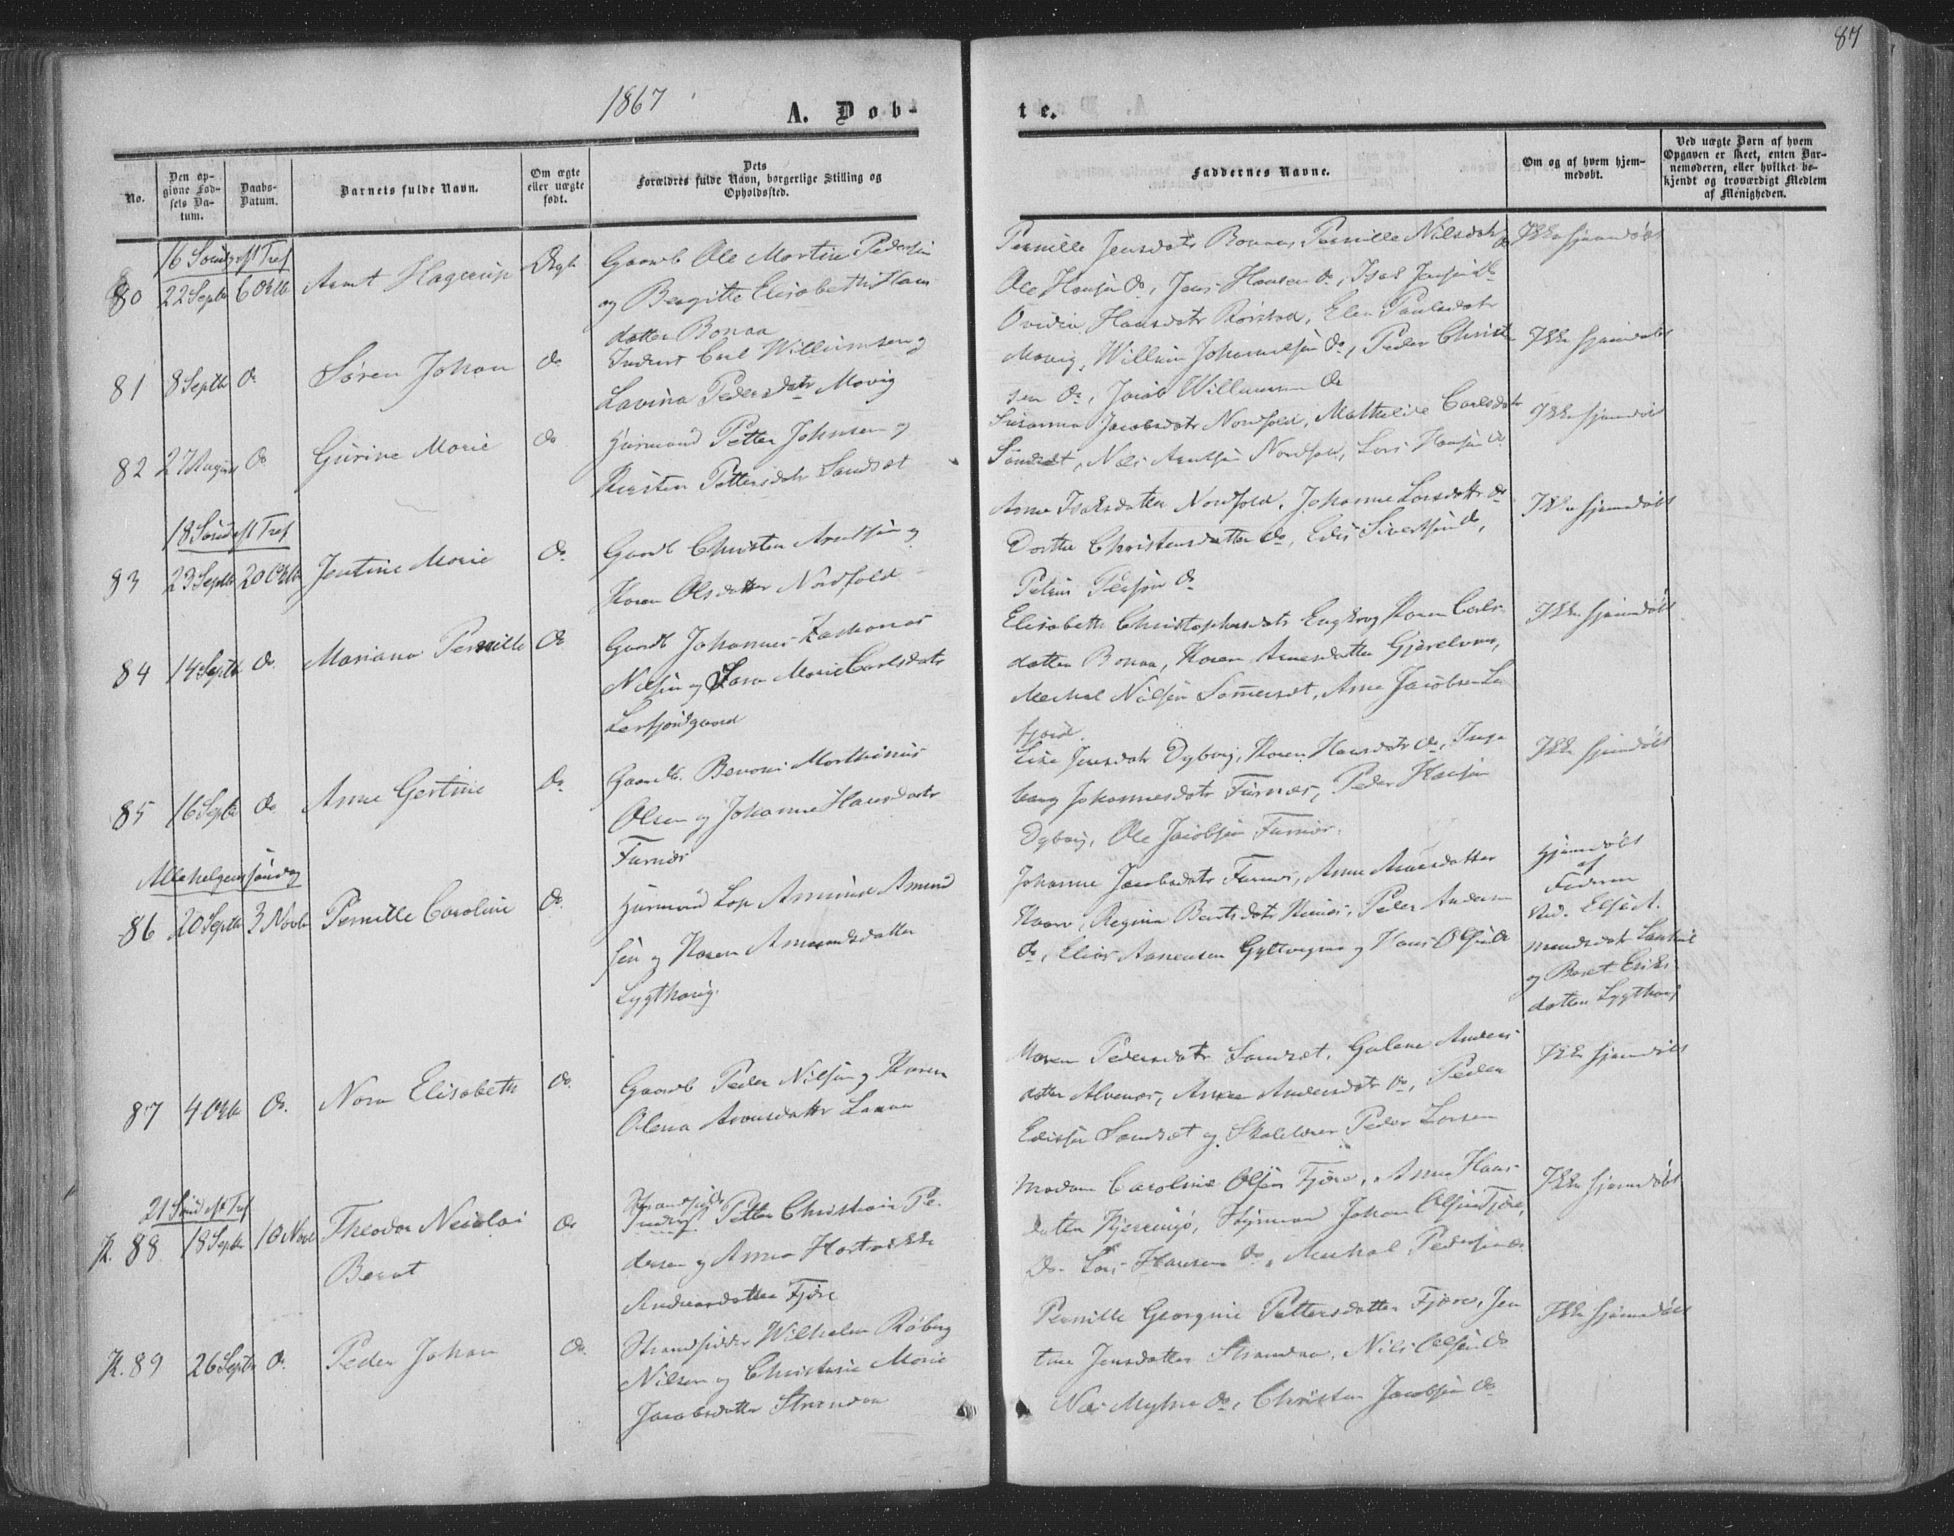 1867
87
A. Døb-
te.
No.
Den op-
givne Fød-
sels Da-
tum.
Daabs-
Datum.
Barnets fulde Navn.
Om ægte
eller uægte
født.
Dets
Forældres fulde Navn, borgerlige Stilling og
Opholdssted.
Faddernes Navne.
Om og af hvem hjem-
medøbt.
Ved uægte Børn af hvem
Opgaven er skeet, enten Bar-
nemoderen, eller hvilket be-
kjendt og troværdigt Medlem
af Menigheden.
16 Sønd eft Tref
80 22 Septb 6 Octb Arnt Hagerup Ægte
Gaardb Ole Martin Pedersen
og Bergitte Elisabeth Hans
datter Bonaa
Pernille Jensdatr Bonaa, Pernille Nilsdatr do
Ole Hansen do, Jens Hansen do, Isak Jensen do
Ikke hjemdøbt
81 8 Septb do Søren Johan do
Inderst Carl Willumsen og
Lavina Pedersdatr Movig
Ovidia Hansdatr Rørstad, Elen Paulsdatr
Movig, Willum Johannesen do, Peder Christen
sen do, Jacob Willumsen do
Ikke hjemdøbt
82 27 August do Gurine Marie do
Huusmand Petter Johnsen og
Kirsten Pettersdatr Sandsæt
Susanna Jacobsdatr Nordfold, Mathilde Carlsdatr
Sandsæt, Nils Arntsen Nordfold, Lars Hansen do
Ikke hjemdøbt
18 Sønd eft Tref
83 23 Septb 20 Octb Jentine Marie do
Gaardb Christen Arntsen og
Karen Olsdatter Nordfold
Anne Isaksdatter Nordfold, Johanne Larsdatr do
Dorthe Christensdatter do, Edis Sivertsen do,
Petrus Persen do
Ikke hjemdøbt
84 14 Septb do Mariana Pernille do
Gaardb Johannes Zacharias
Nilsen og Sara Marie Carlsdatr
Leerfjordgaard
Elisabeth Christophersdatr Engkrog, Karen Carls-
datter Bonaa, Karen Arnesdatter Gjerelvnes,
Mechal Nilsen Sommerset, Arne Jacobsen Leer
fjord.
Ikke hjemdøbt
85 16 Septb do Anne Gertine do
Gaardb. Benoni Marthinus
Olsen og Johanna Hansdatr
Furnæs
Lise Jensdatr Dyborg, Karen Hansdatr do, Inge
borg Johannesdatr Furnæs, Peder Hansen
Dyborg, Ole Jacobsen Furnæs.
Ikke hjemdøbt
Allehelgenssøndag
86 20 Septb 3 Novbr Pernille Caroline do
Huusmand Lap Amund Amund
sen og Karen Amundsdatter
Lygthaug.
Johanne Jacobsdatr Furnæs, Anne Arnesdatter
Regina Bertsdatr Peder Andersen
do, Elias Aanensen Gyltvigne og Hans Olsen do
Hjemdøbt
af
Faderen
Vid. Else A-
mundsdatr
og Beret Eriks
datter Lygthaug
87 4 Octb do. Nora Elisabeth do.
Gaardb Peder Nilsen og Karen
Olena Arnesdatter Laxaa
Maren Pedersdatr Sandsæt, Galene Anders
datter Alvenæs, Anne Andersdatr do, Peder
Edissen Sandsæt og Skolelærer Peder Larsen
Ikke hjemdøbt
21 Sønd eft Tref
K. 88 18 Septb 10 Novb Theodor Nicolai
Bernt do
Strandsidder
Inderst Petter Christian Pe-
dersen og Anna Hartvikke
Andreasdatter Fjære
Madam Caroline Olsen Fjære, Anne Hans-
datter Kjerringø, Styrmand Johan Olsen Fjære,
do. Lars Hansen do, Mechal Pedersen do
Ikke hjemdøbt
K. 89 26 Septb do. Peder Johan do.
Strandsidder Wilhelm Røberg
Nilsen og Christine Marie
Jacobsdatter Strandaa
Pernille Georgine Pettersdatter Fjære, Jen
tine Jensdatter Strandaa, Nils Olsen do
Nils Myhre do, Christen Jacobsen do
Ikke hjemdøbt